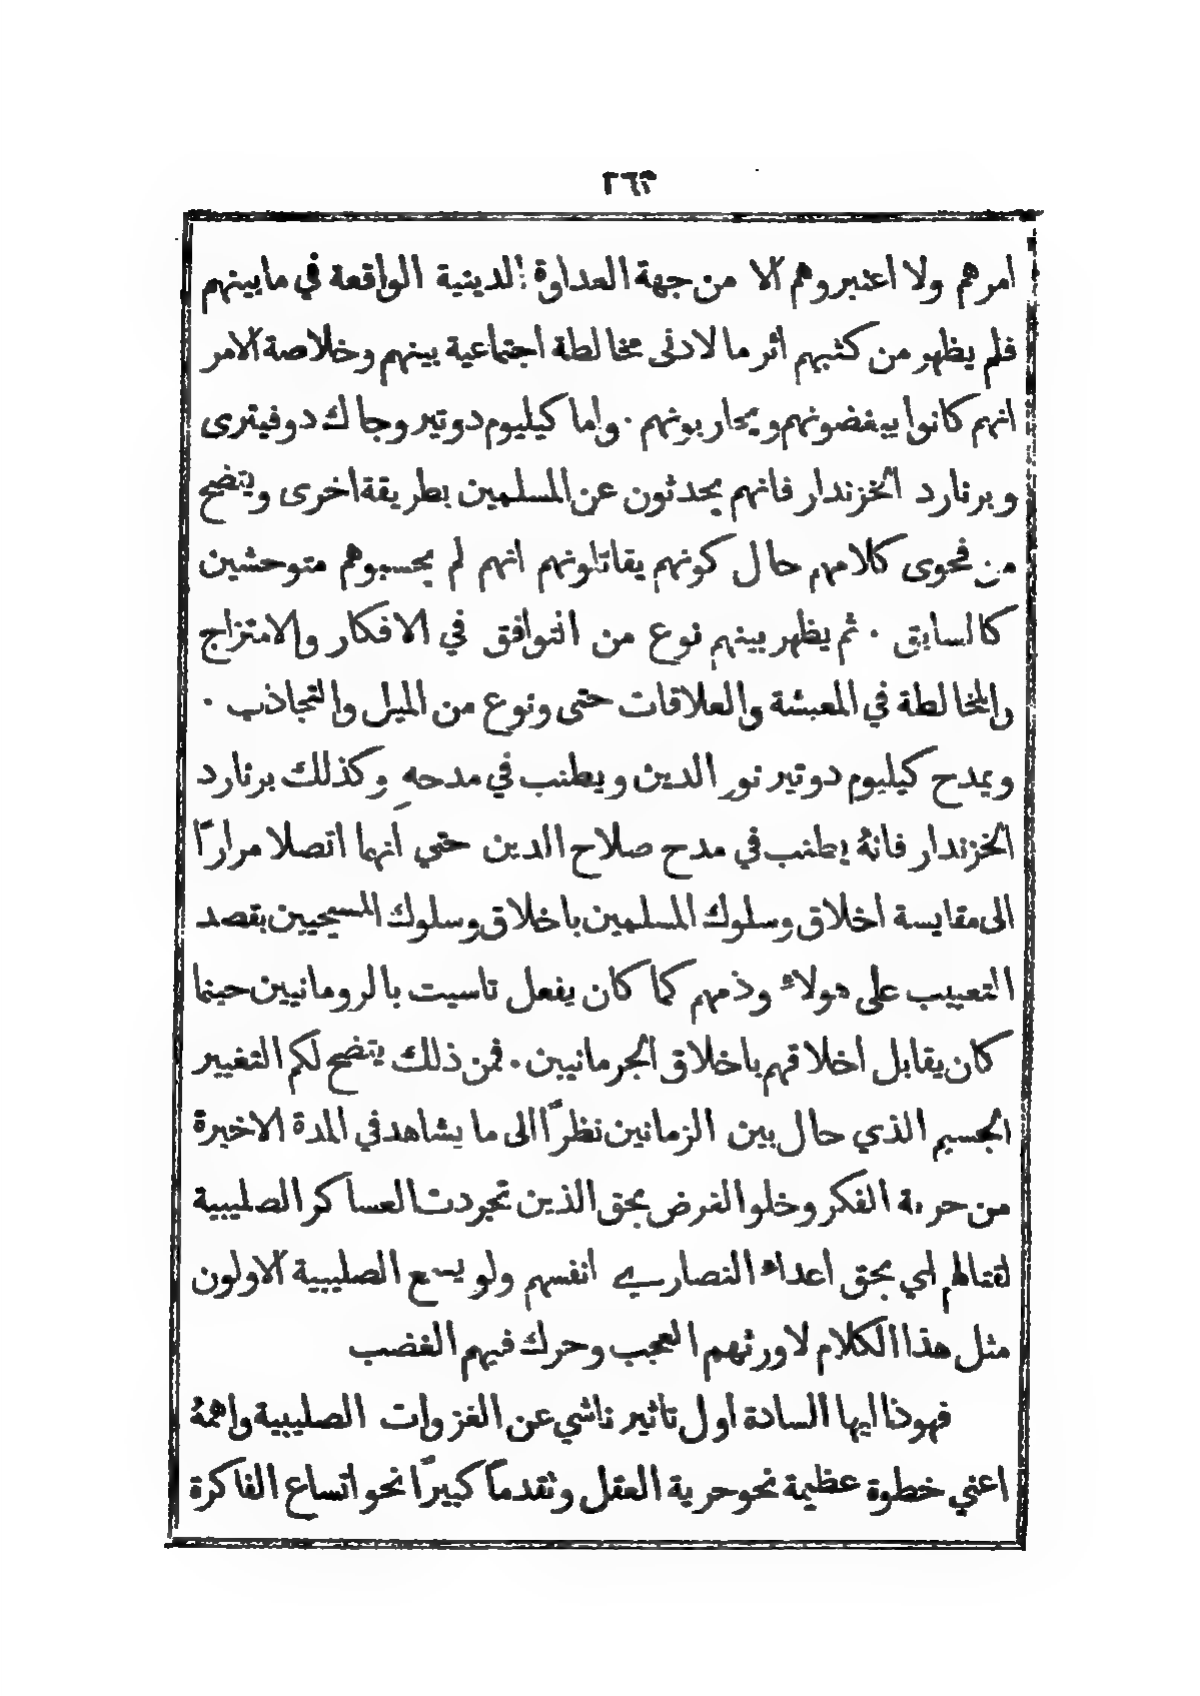 ٢٦٣
امرهم ولا اعتبروهم الا من جهة العداوة الدينية الواقعة في ما بينهم
فلم يظهر من كتبهم اثر ما لادنى مخالطة اجتماعية بينهم وخلاصة الامر
انهم كانوا يبغضونهم ويحاربونهم . واما كيليوم دوتير وجاك دوفيترى
وبرنارد الخزندار فانهم يحدثون عن المسلمين بطريقة اخرى ويتضح
من فحوى كلامهم حال كونهم يقاتلونهم انهم لم يحسبوهم متوحشين
كالسابق . ثم يظهر بينهم نوع من التوافق في الافكار والامتزاج
والمخالطة في المعيشة والعلاقات حتى ونوع من الميل والتجاذب .
ويمدح كيليوم دوتير نور الدين ويطنب في مدحهِ وكذلك برنارد
الخزندار فانهُ يطنب في مدح صلاح الدين حتي انهما اتصلا مراراً
الى مقايسة اخلاق وسلوك المسلمين باخلاق وسلوك المسيحيين بقصد
التعييب على هولاء وذمهم كما كان يفعل تاسيت بالرومانيين حينما
كان يقابل اخلاقهم باخلاق الجرمانيين . فمن ذلك يتضح لكم التغيير
الجسيم الذي حال بين الزمانين نظراً الى ما يشاهد في المدة الاخيرة
من حرية الفكر وخلو الغرض بحق الذين تجردت العساكر الصليبية
لقتالهم اي بحق اعداء النصارے انفسهم ولو يسمع الصليبية الاولون
مثل هذا الكلام لاورثهم العجب وحرك فيهم الغضب
فهوذا ايها السادة اول تاثير ناشي عن الغزوات الصليبية واهمهُ
اعني خطوة عظيمة نحو حرية العقل وتقدماً كبيراً نحو اتساع الفاكرة